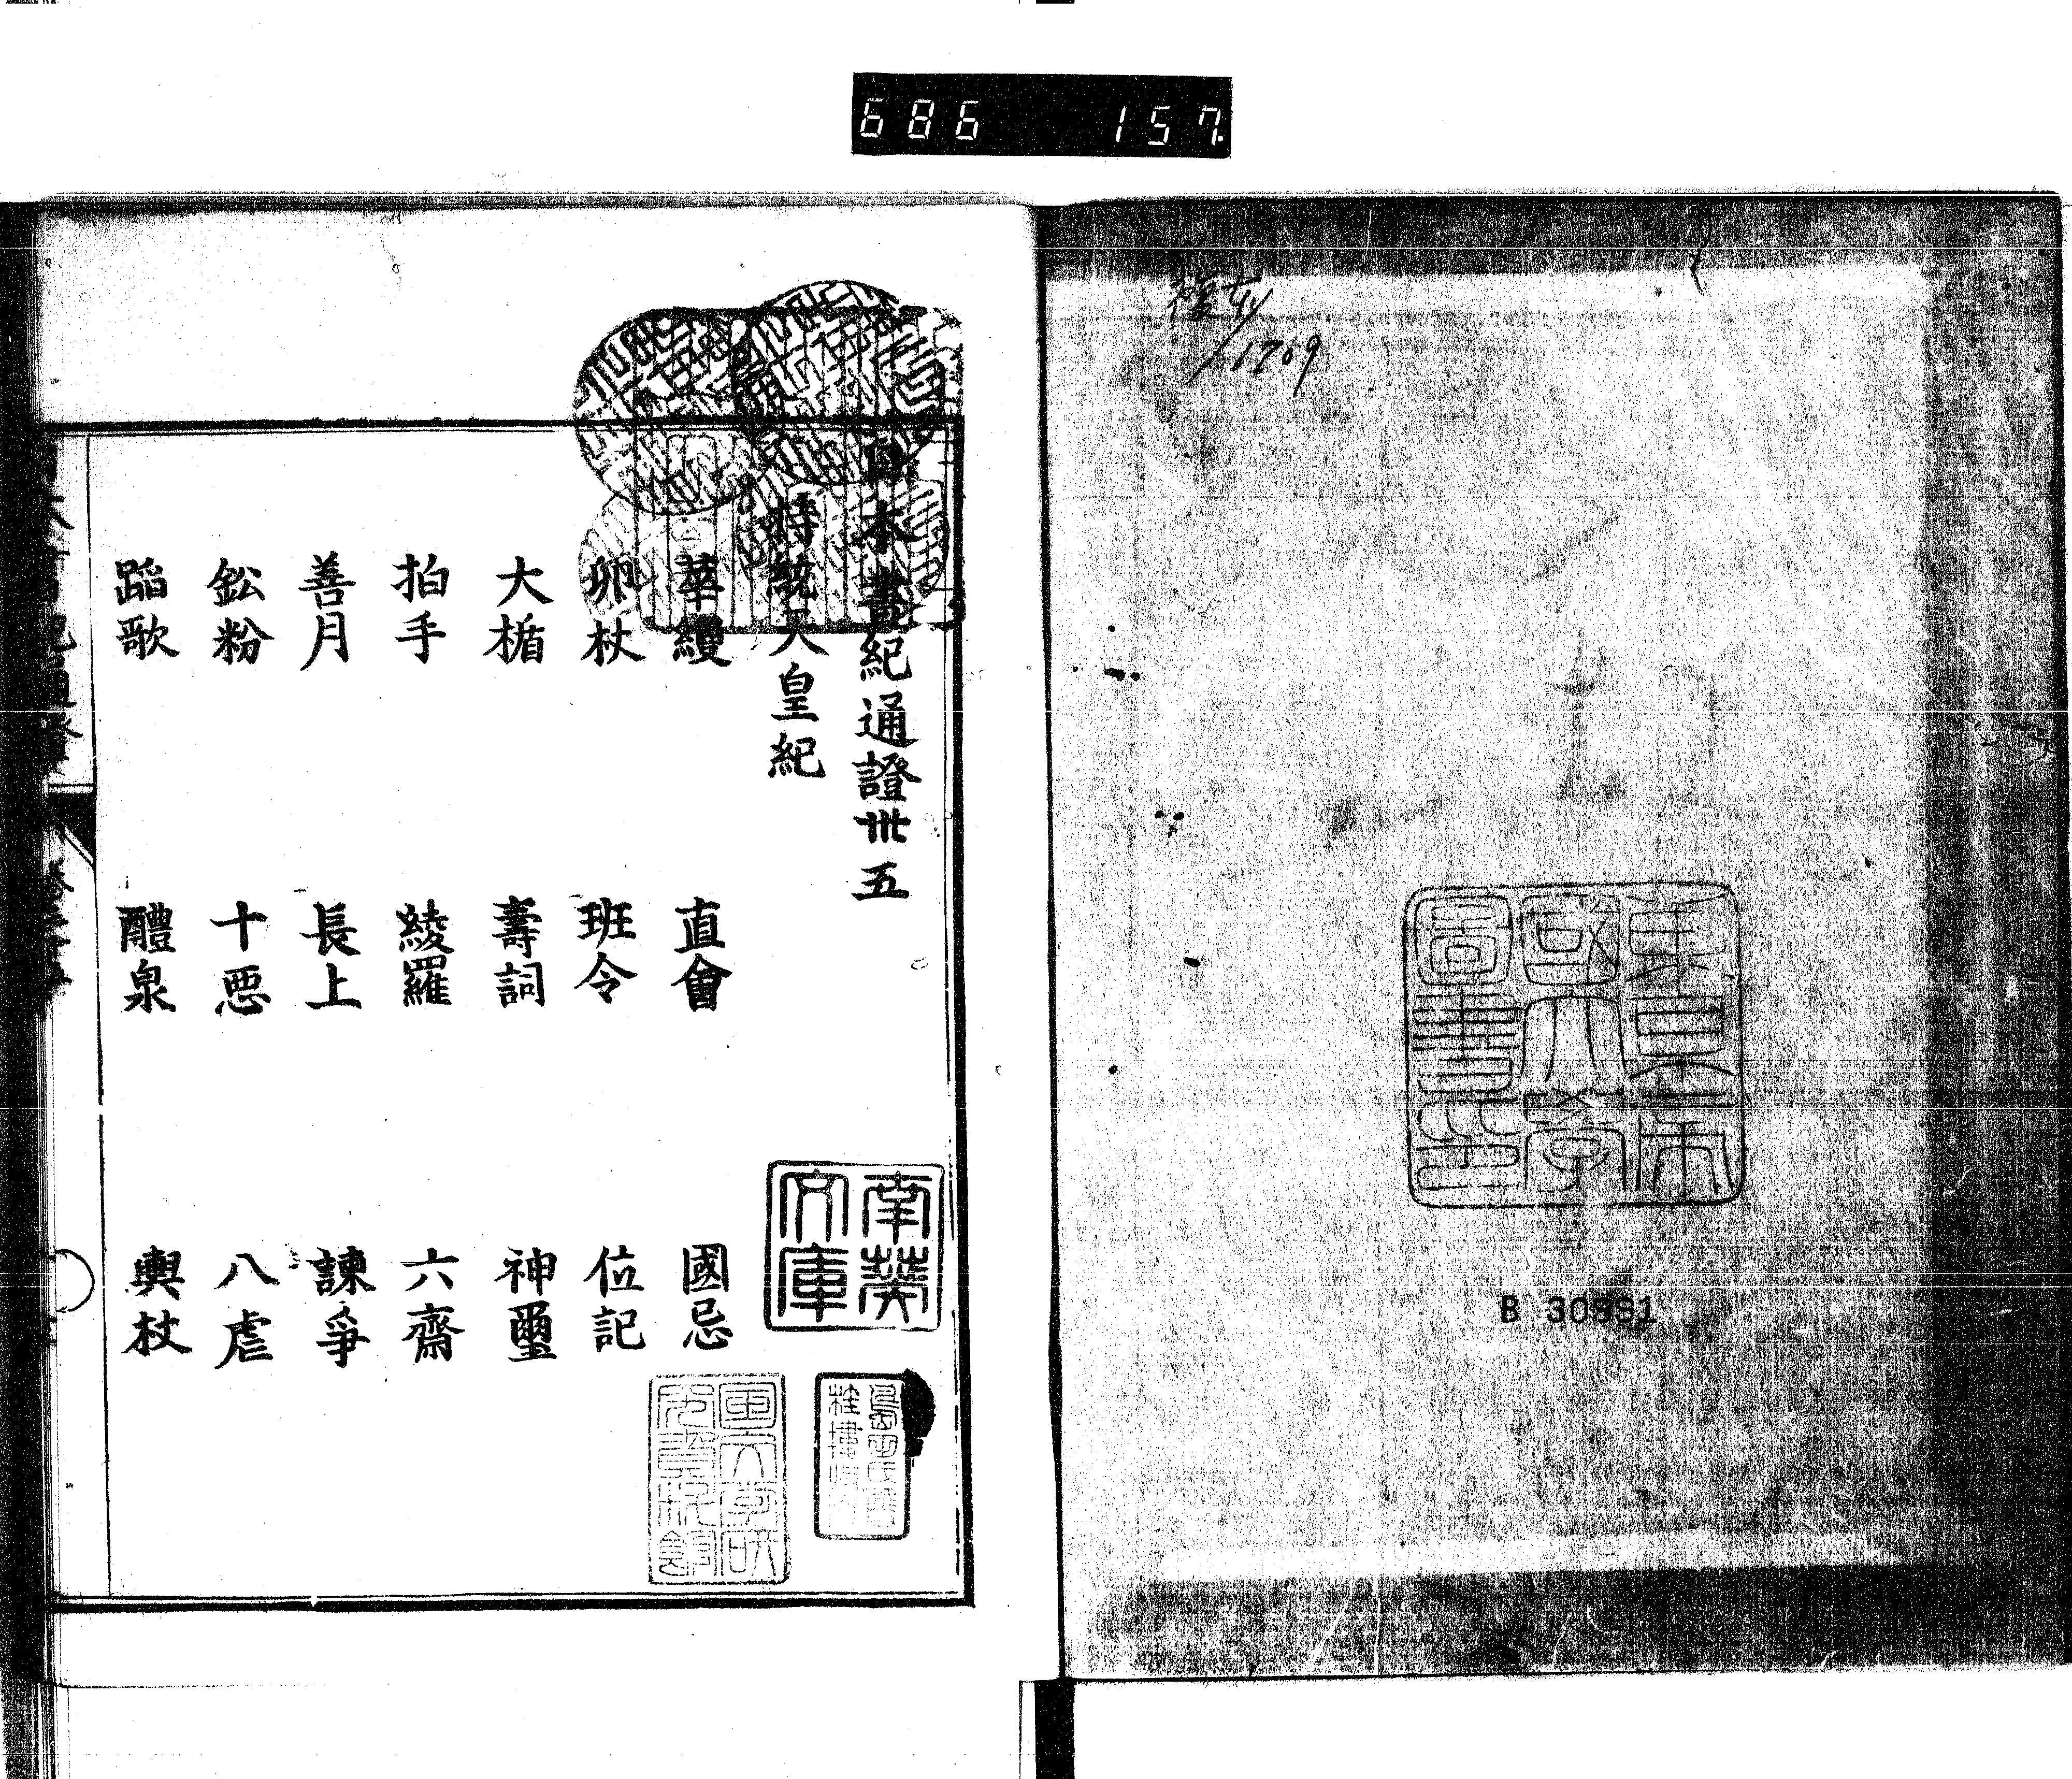 686 157
1709
東京帝
國大學
圖書印
B 30881
日本書紀通證卅五
持統天皇紀
華縵 直會 國忌
卯杖 班令 位記
大楯 壽詞 神璽
拍手 綾羅 六齋
善月 長上 諫爭
鈆粉 十惡 八虐
蹈歌 醴泉 輿杖
南葵
文庫